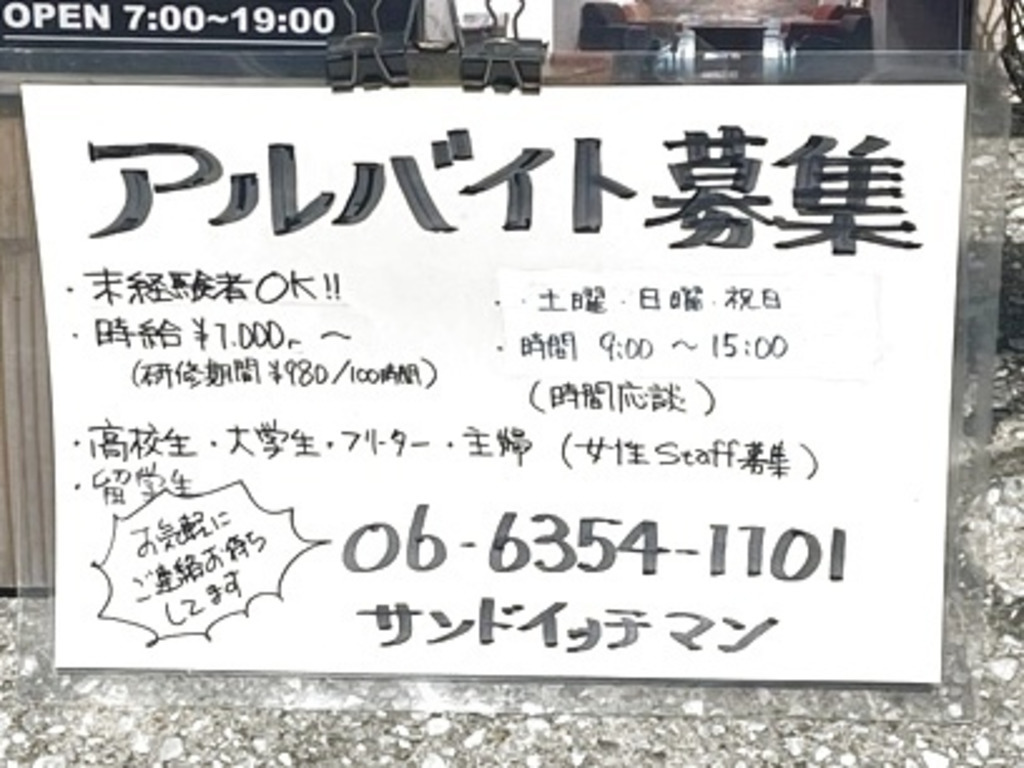 OPEN 7:00~19:00
アルバイト募集
・未経験者OK!!
・時給¥1.000.~
(研修期間¥980/100時間)
・土曜.日曜.祝日
・時間 9:00 ~ 15:00
(時間応談)
・高校生・大学生・フリーター・主婦 (女性Staff募集)
・留学生
お気軽に
ご連絡お待ち
してます
06-6354-1101
サンドイッチマン